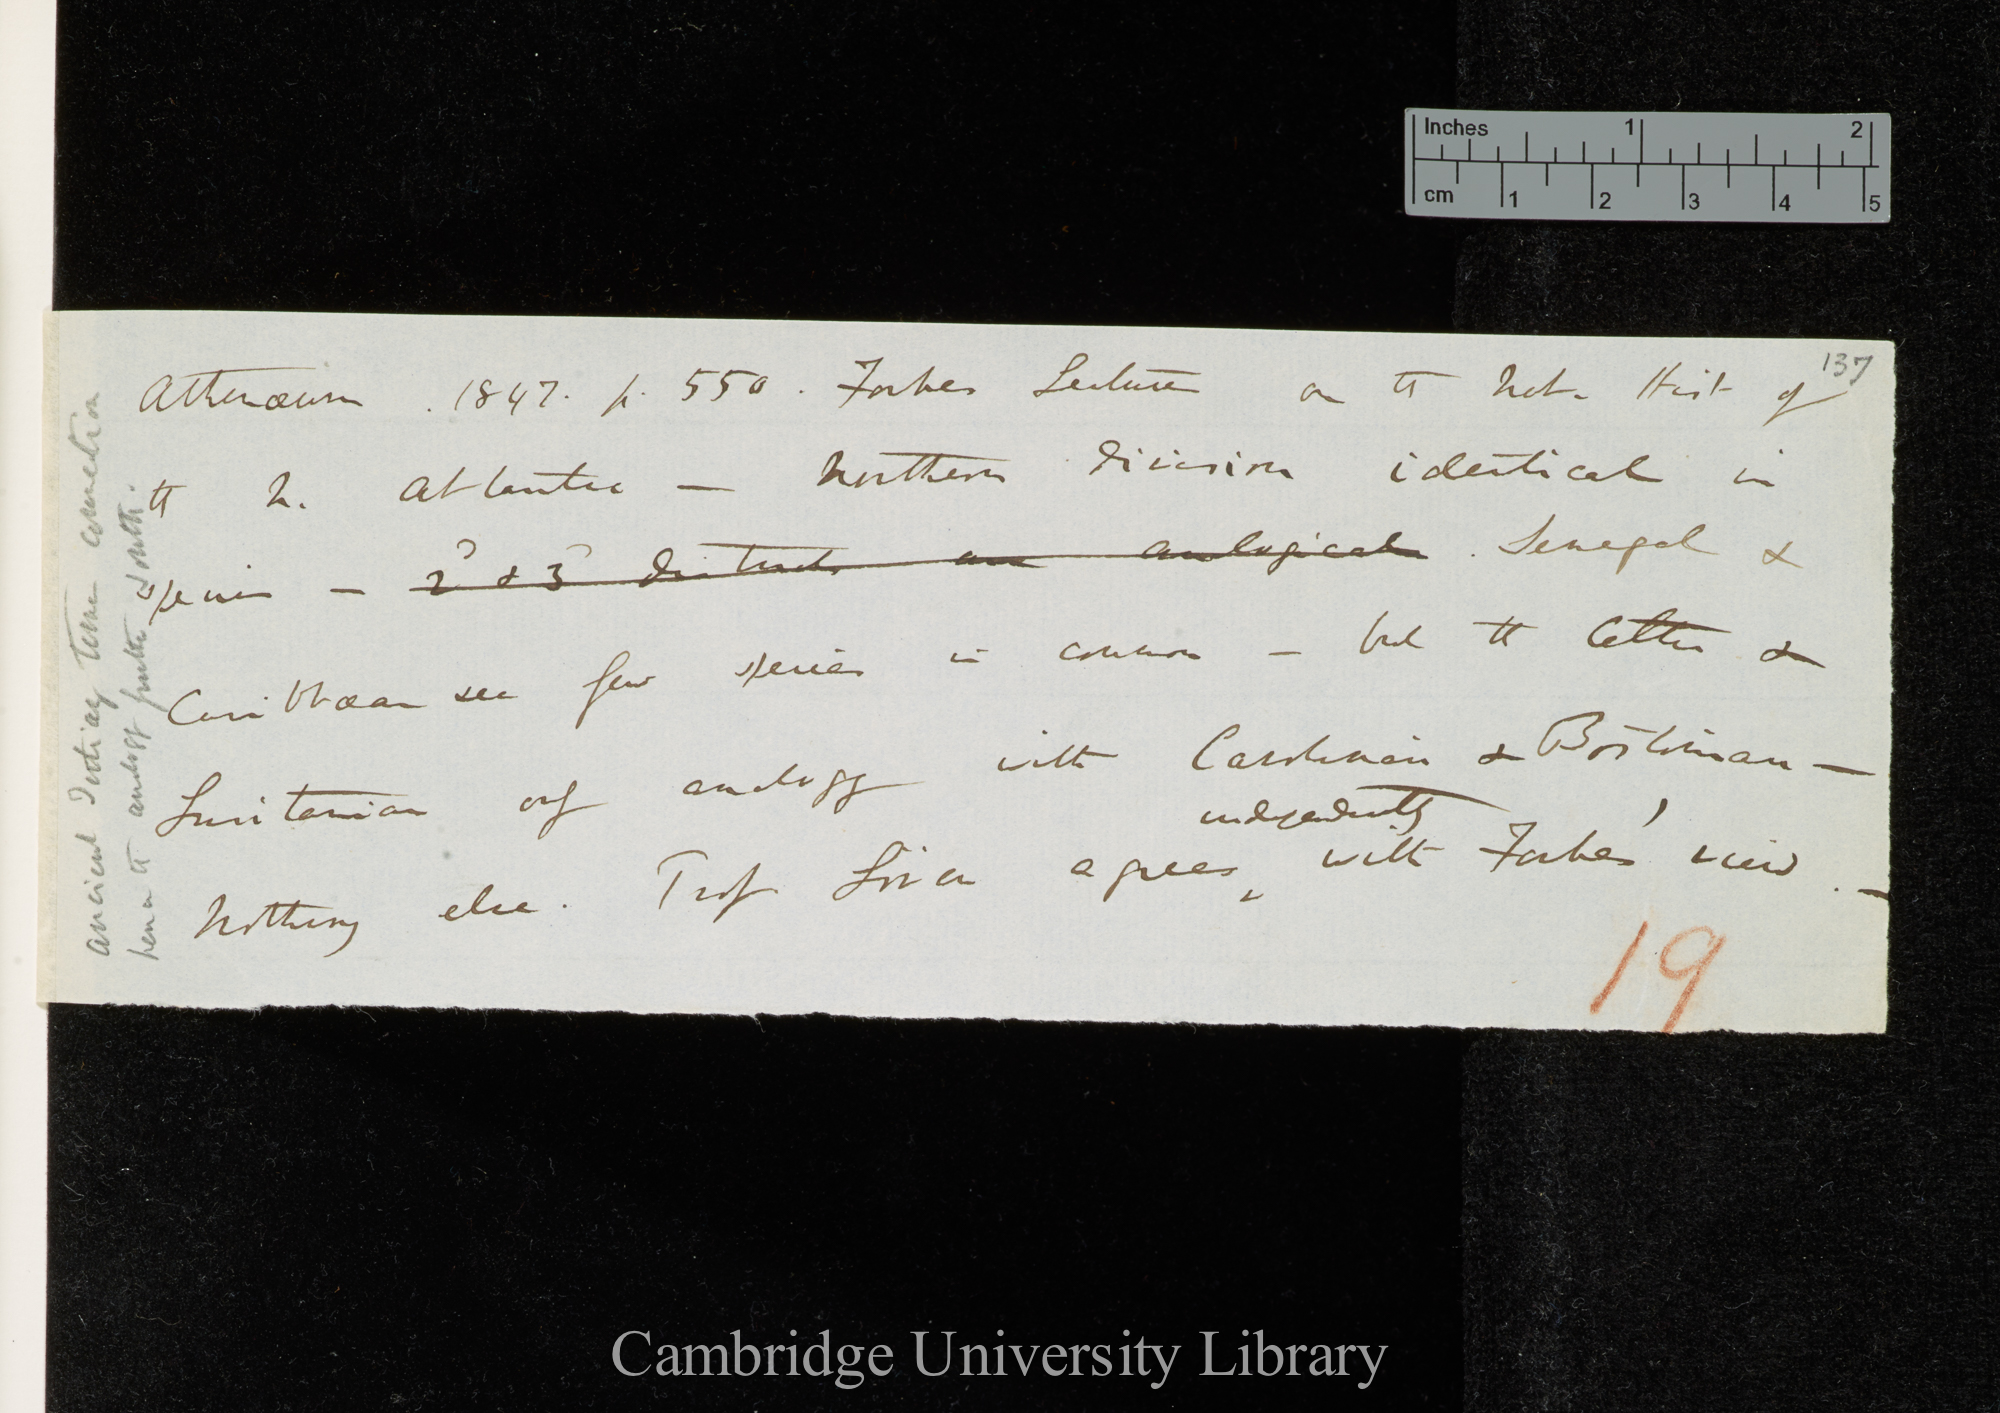 137
Athenæum . 1847. p. 550 . Forbes Lecture on tt Nat. Hist of
tt N. Atlantic — Northern division identical in
species — 2d & 3d districts are analogical . Senegal &
Caribbæan sea few species in common — but tt latter &
Lusitanian only analogy with Carolinian & Bostonian —
independently
Nothing else. Prof Lovén agrees ‸ with Forbes' view . —
19
ancient
connection
hence tt analogy further South.
Inches 1 2
cm 1 2 3 4 5
Cambridge University Library